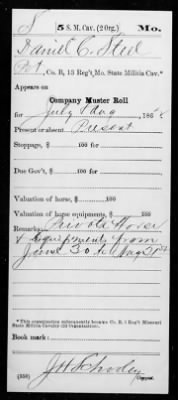 S | 5 S. M. Cav. (2 Org.) | Mo.
Daniel C. Steel
Pvt, Co. B, 13 Reg't Mo. State Militia Cav.*
Appears on
Company Muster Roll
for July & Aug, 186
Present or absent Present
Stoppage, $ 100 for
Due Gov't, $ 100 for
Valuation of horse, $ 100
Valuation of horse equipments, $ 100
Remarks: Private Horse
& Equipments from
June 30 to Aug 31st
*This organization subsequently became Co. B, 5 Reg't Missouri
State Militia Cavalry (2d Organization).
Book mark:
(358)
Copyist.